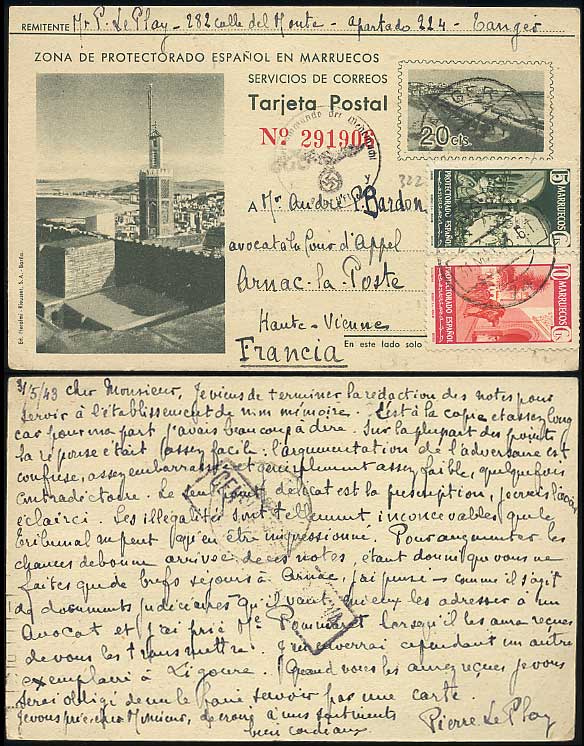 REMITENTE Mr P. Le Play - 282 calle del Monte - Apartado 224 - Tanger
ZONA DE PROTECTORADO ESPAÑOL EN MARRUECOS
SERVICIOS DE CORREOS
Tarjeta Postal
Nº 291906
20 cts.
322
A Mr André P. Bardon
avocat à la Cour d'Appel
Arnac-la-Poste
Haute-Vienne
Francia
En este lado solo
5 Cts MARRUECOS
PROTECTORADO ESPAÑOL
10 Cts MARRUECOS
PROTECTORADO ESPAÑOL
Ed. Hauser S.A.-Barna.
31/5/43 Cher Monsieur, Je viens de terminer la rédaction des notes pour
servir à l'établissement de mon mémoire. C'est à la copie et assez long
car pour ma part j'avais beaucoup à dire. Sur la plupart des points
la réponse était assez facile: l'argumentation de l'adversaire est
confuse, assez embarrassée et généralement assez faible, quelquefois
contradictoire. Le seul point délicat est la prescription, je crois l'avoir
éclairci. Les illégalités sont tellement inconcevables que le
Tribunal ne peut qu'en être impressionné. Pour augmenter les
chances de bonne arrivée de ces notes, étant donné que vous ne
faites que de brefs séjours à Arnac, j'ai pensé - comme il s'agit
de documents judiciaires qu'il vaut mieux les adresser à un
Avocat et j'ai prié Me lorsqu'il les aura reçues
de vous les transmettre. J'enverrai cependant un autre
exemplaire à Ligoure. Quand vous les aurez reçues je vous
serai obligé de me le faire savoir par une carte.
Je vous prie, cher Monsieur, de croire à mes sentiments
bien cordiaux
Pierre Le Play